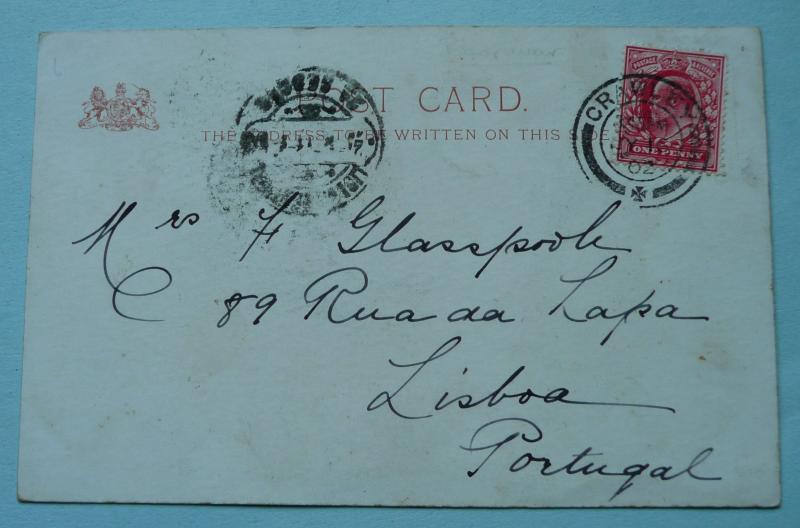 POST CARD.
THE ADDRESS TO BE WRITTEN ON THIS SIDE
POSTAGE REVENUE
ONE PENNY
CRAWLEY
Mrs F Glasspoole
89 Rua da Lapa
Lisboa
Portugal